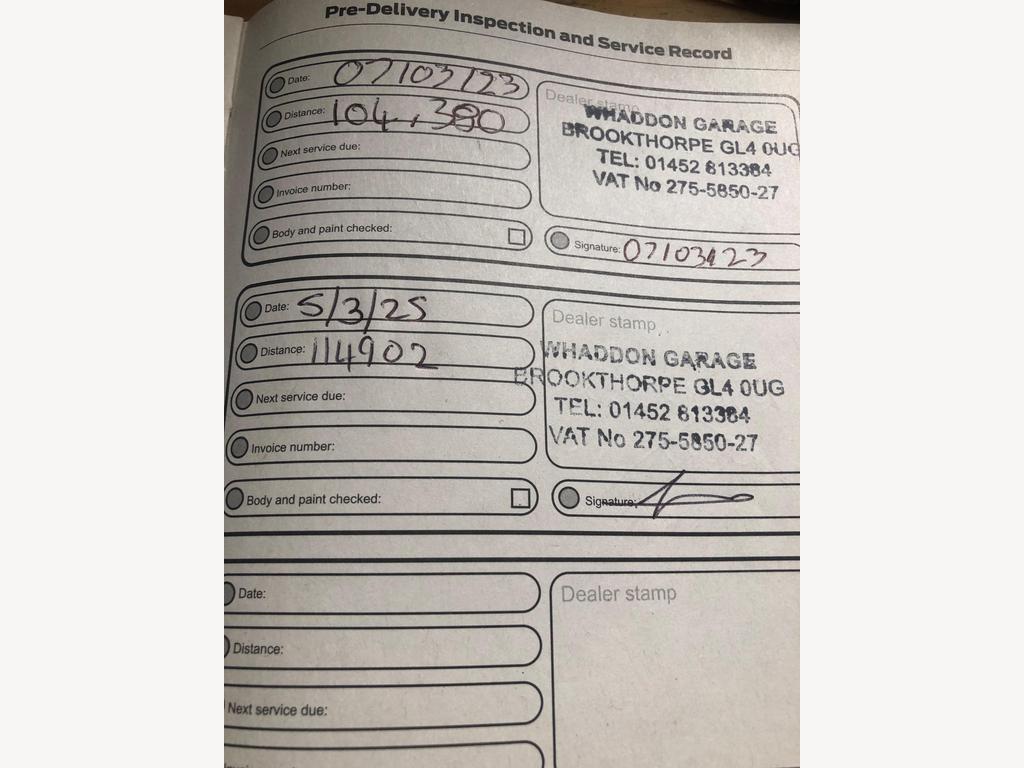 Pre-Delivery Inspection and Service Record
Date: 07/03/23
Distance: 104,380
Next service due:
Invoice number:
Body and paint checked:
Dealer stamp
WHADDON GARAGE
BROOKTHORPE GL4 0UG
TEL: 01452 813384
VAT No 275-5850-27
Signature: 07/03/23
Date: 5/3/25
Distance: 114902
Next service due:
Invoice number:
Body and paint checked:
Dealer stamp
WHADDON GARAGE
BROOKTHORPE GL4 0UG
TEL: 01452 813384
VAT No 275-5850-27
Signature:
Date:
Distance:
Next service due:
Dealer stamp